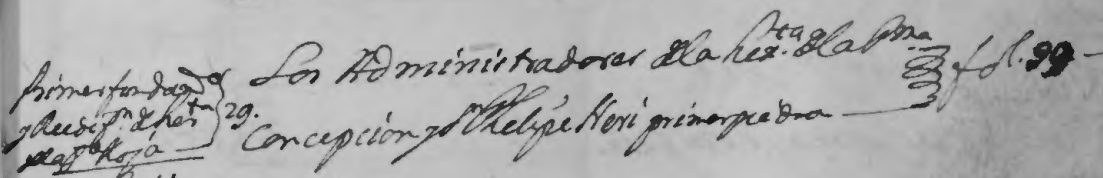 Primer fundaz.on
y Reedif.n d her.ta 29.
Roja
Los Administradores de la her.ta de la Pma
Concepcion y Sn Phelipe Neri primer piedra
fol. 99